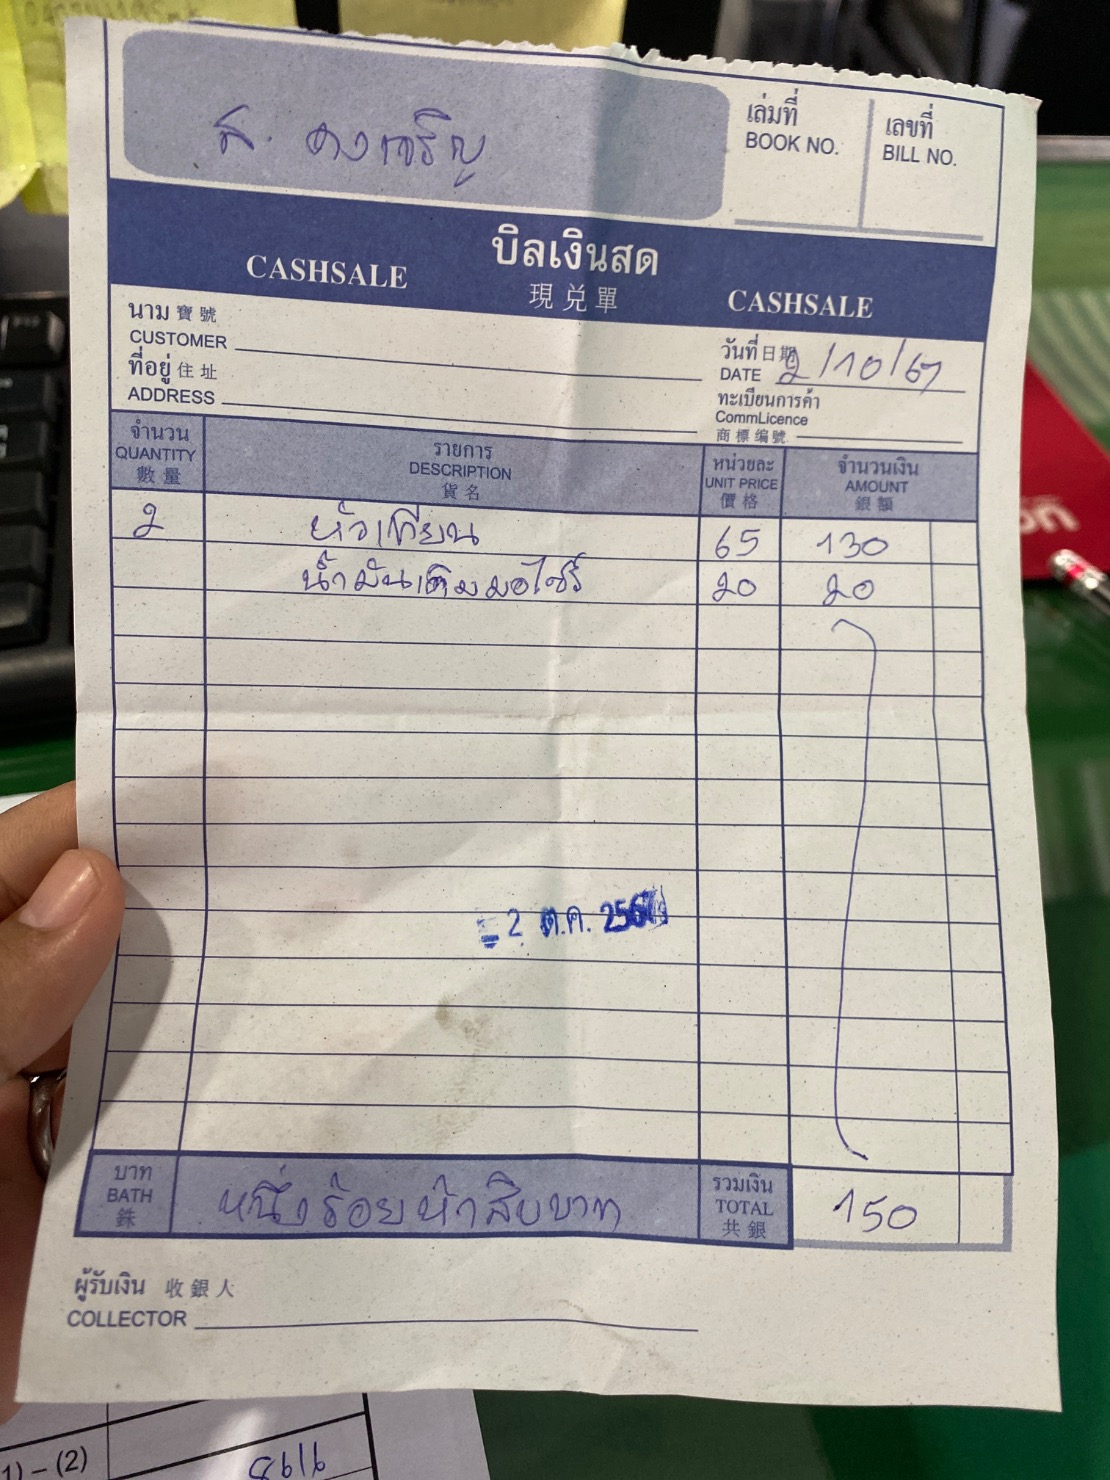 ส. คงเจริญ
เล่มที่
BOOK NO.
เลขที่
BILL NO.
บิลเงินสด
CASHSALE
現兑單
CASHSALE
นาม 寶號
CUSTOMER
ที่อยู่ 住址
ADDRESS
วันที่ 日期
DATE 2/10/67
ทะเบียนการค้า
CommLicence
商標编號
จำนวน
QUANTITY
數量
รายการ
DESCRIPTION
貨名
หน่วยละ
UNIT PRICE
價格
จำนวนเงิน
AMOUNT
銀額
2 หัวเทียน 65 130
น้ำมันเติมมอไซร์ 20 20
2 ต.ค. 2567
บาท
BATH
銖
หนึ่งร้อยห้าสิบบาท
รวมเงิน
TOTAL
共銀
150
ผู้รับเงิน 收銀人
COLLECTOR
1) – (2)